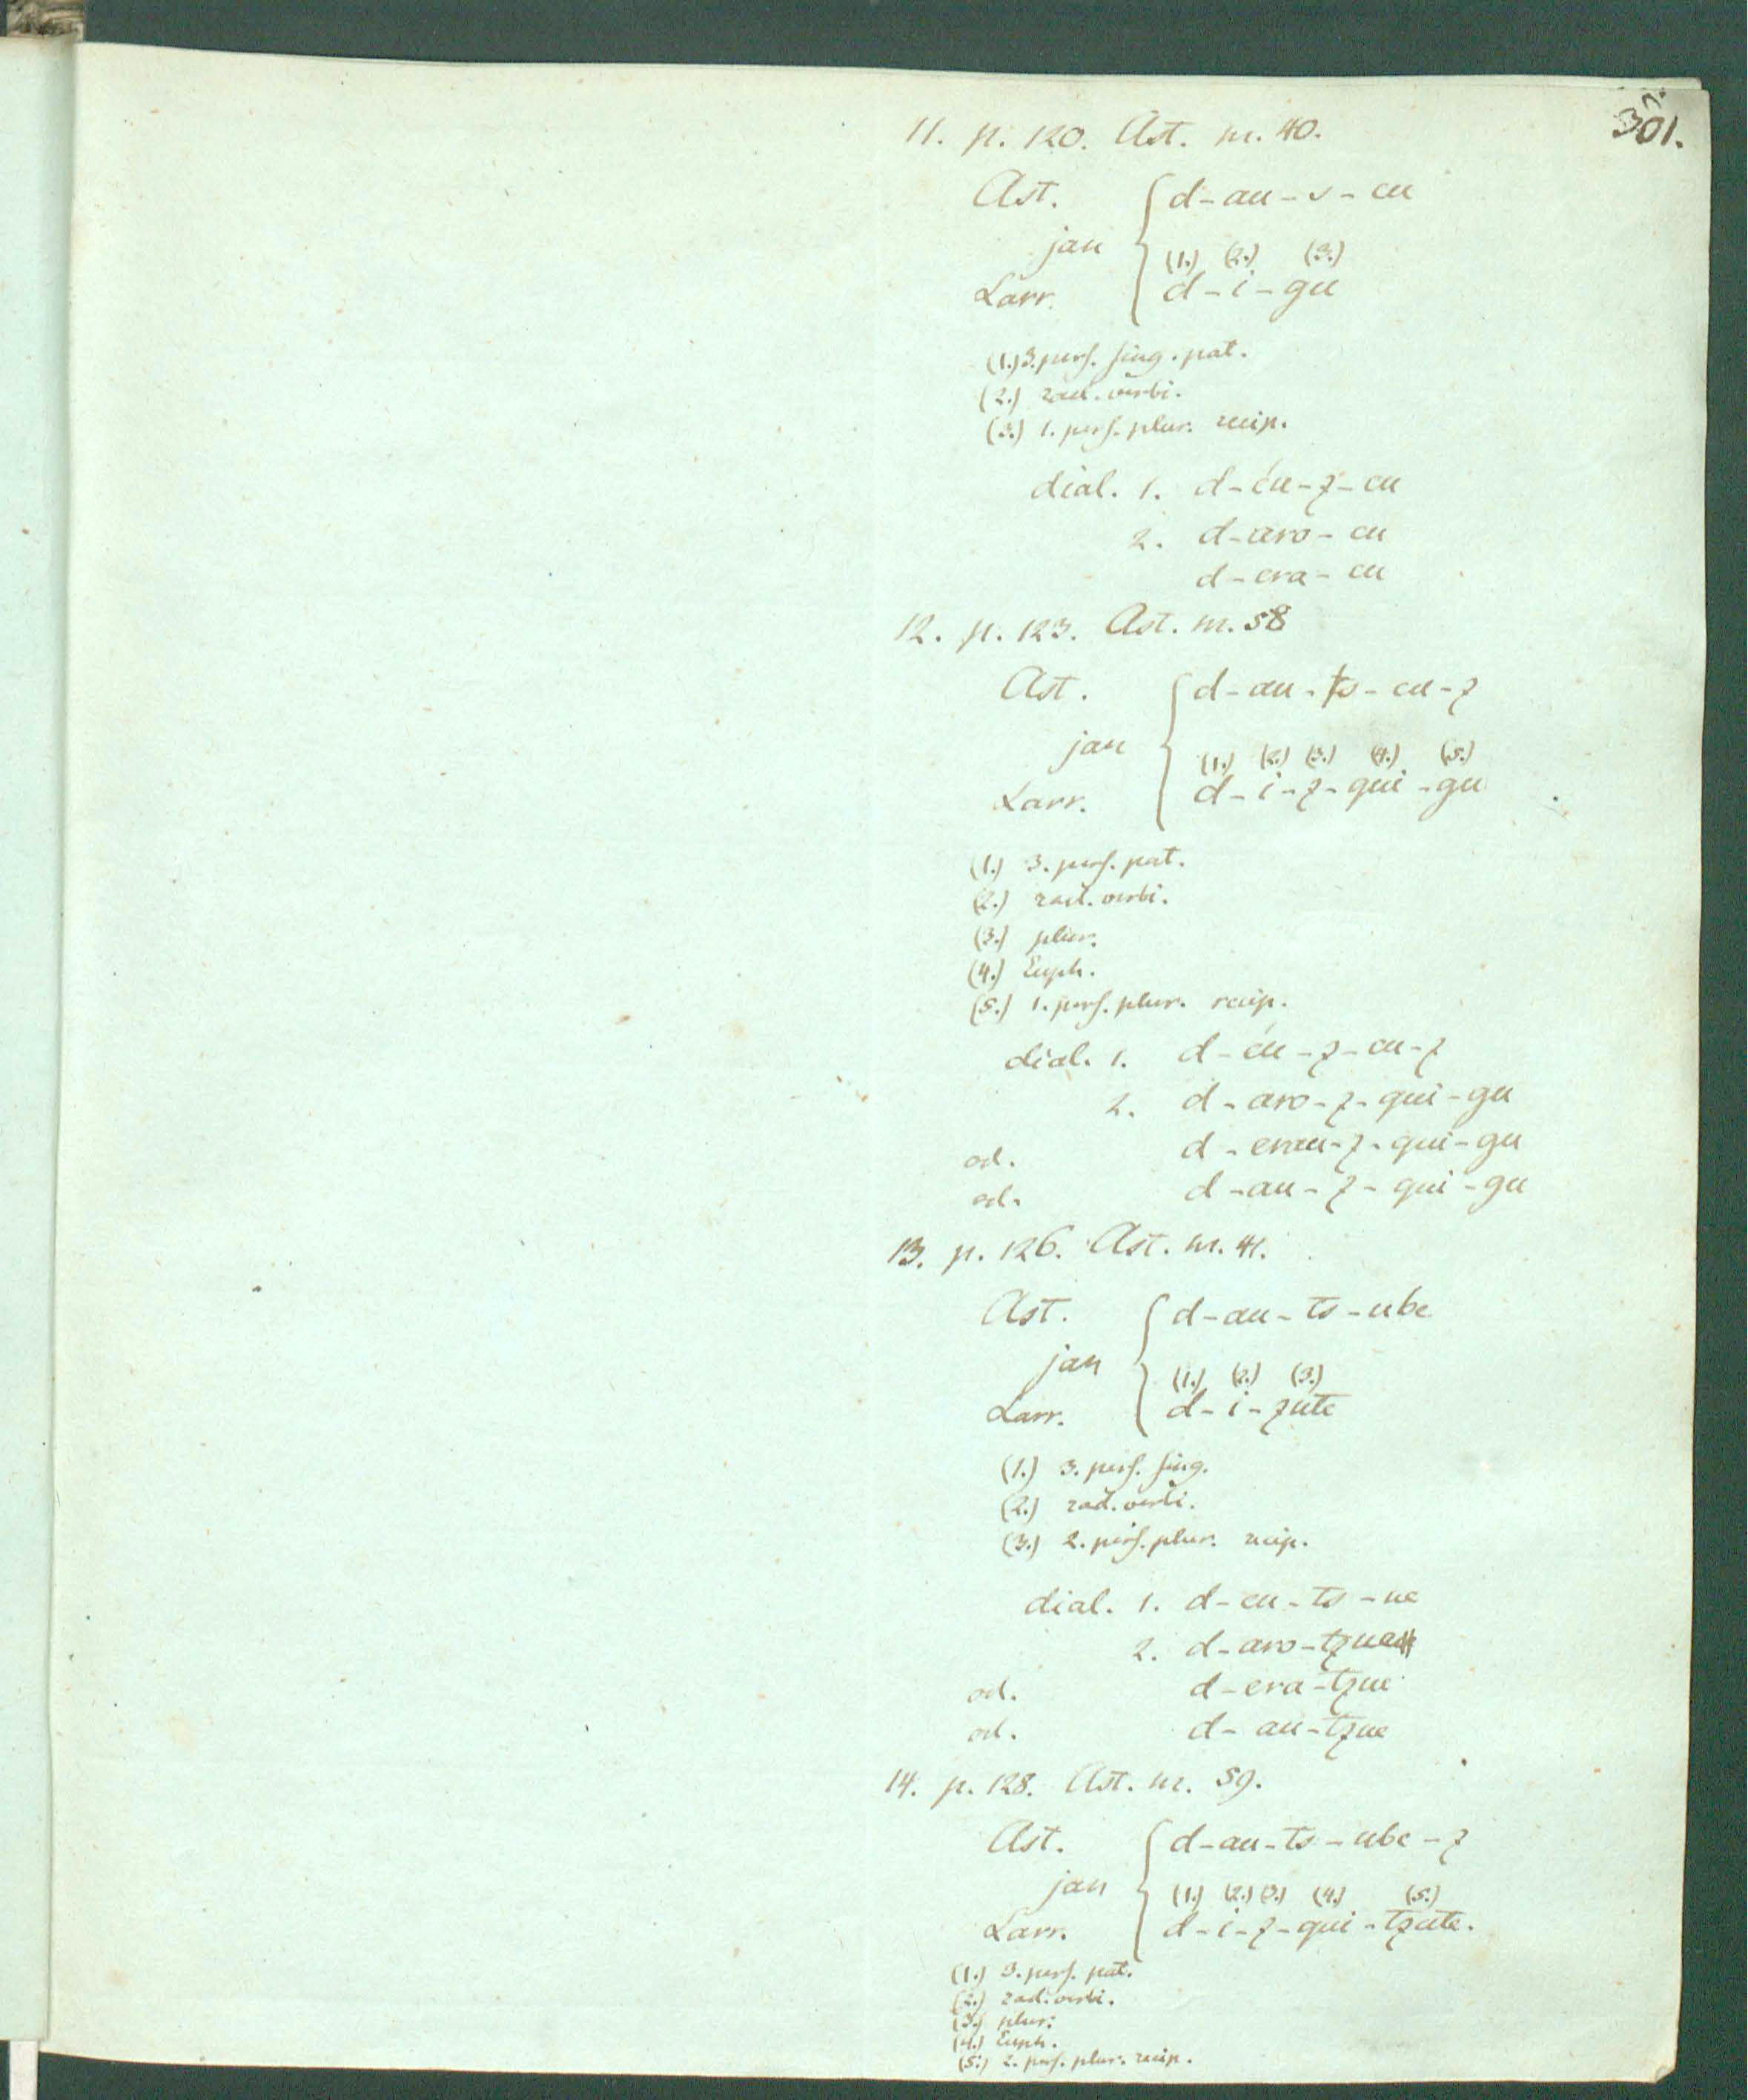 301.
11. p. 120. Ast. nr. 40.
Ast. d-au-s-cu
jan
(1.) (2.) (3.)
Larr. d-i-gu
(1.) 3. pers. sing. pat.
(2.) rad. verbi.
(3.) 1. pers. plur. recip.
dial. 1. d-éu-z-cu
2. d-aro-cu
d-era-cu
12. p. 123. Ast. nr. 58
Ast. d-au-ts-cu-z
jan
(1.) (2.) (3.) (4.) (5.)
Larr. d-i-z-qui-gu
(1.) 3. pers. pat.
(2.) rad. verbi.
(3.) plur.
(4.) Euph.
(5.) 1. pers. plur. recip.
dial. 1. d-éu-z-cu-z
2. d-aro-z-qui-gu
od. d-erau-z-qui-gu
od. d-au-z-qui-gu
13. p. 126. Ast. nr. 41.
Ast. d-au-ts-ube
jan
(1.) (2.) (3.)
Larr. d-i-zute
(1.) 3. pers. sing.
(2.) rad. verbi.
(3.) 2. pers. plur. recip.
dial. 1. d-eu-ts-ue
2. d-aro-tzue
od. d-era-tzue
od. d-au-tzue
14. p. 128. Ast. nr. 59.
Ast. d-au-ts-ube-z
jan
(1.) (2.) (3.) (4.) (5.)
Larr. d-i-z-qui-tzute.
(1.) 3. pers. pat.
(2.) rad. verbi.
(3.) plur.
(4.) Euph.
(5.) 2. pers. plur. recip.